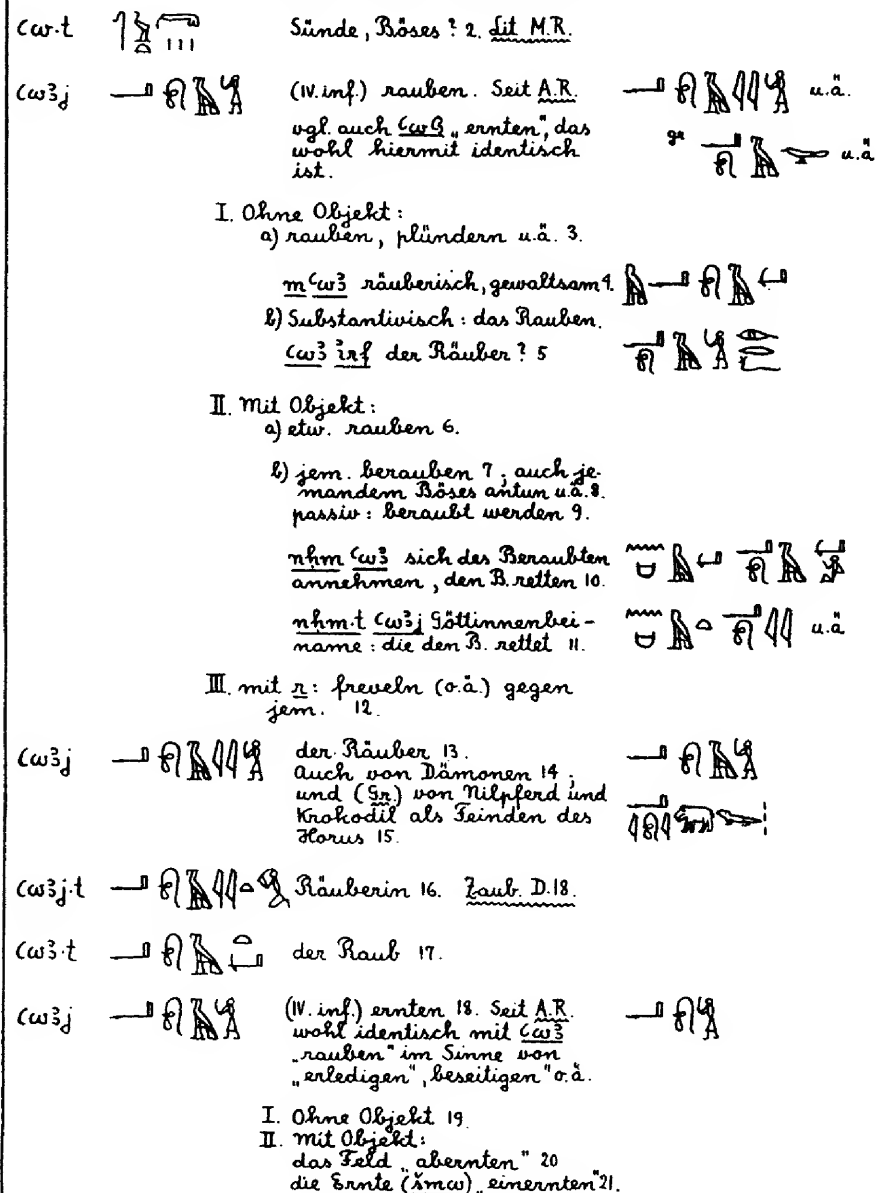 ꜥw.t Sünde, Böses ? 2. Lit M.R.
ꜥwꜣj (IV. inf.) rauben. Seit A.R. u.ä.
vgl. auch ꜥwꜣ „ernten", das
wohl hiermit identisch
ist.
gr u.ä
I. Ohne Objekt:
a) rauben, plündern u.ä. 3.
m ꜥwꜣ räuberisch, gewaltsam 4.
b) Substantivisch: das Rauben.
ꜥwꜣ irf der Räuber ? 5
II. Mit Objekt:
a) etw. rauben 6.
b) jem. berauben 7; auch je-
mandem Böses antun u.ä. 8.
passiv: beraubt werden 9.
nḥm ꜥwꜣ sich des Beraubten
annehmen, den B. retten 10.
nḥm.t ꜥwꜣj Göttinnenbei-
name: die den B. rettet 11. u.ä
III. mit r: freveln (o.ä.) gegen
jem. 12.
ꜥwꜣj der Räuber 13.
Auch von Dämonen 14;
und (Gr.) von Nilpferd und
Krokodil als Feinden des
Horus 15.
ꜥwꜣj.t Räuberin 16. Zaub. D.18.
ꜥwꜣ.t der Raub 17.
ꜥwꜣj (IV. inf.) ernten 18. Seit A.R.
wohl identisch mit ꜥwꜣ
„rauben" im Sinne von
„erledigen", beseitigen" o.ä.
I. Ohne Objekt 19
II. Mit Objekt:
das Feld „abernten" 20
die Ernte (šmw) „einernten" 21.